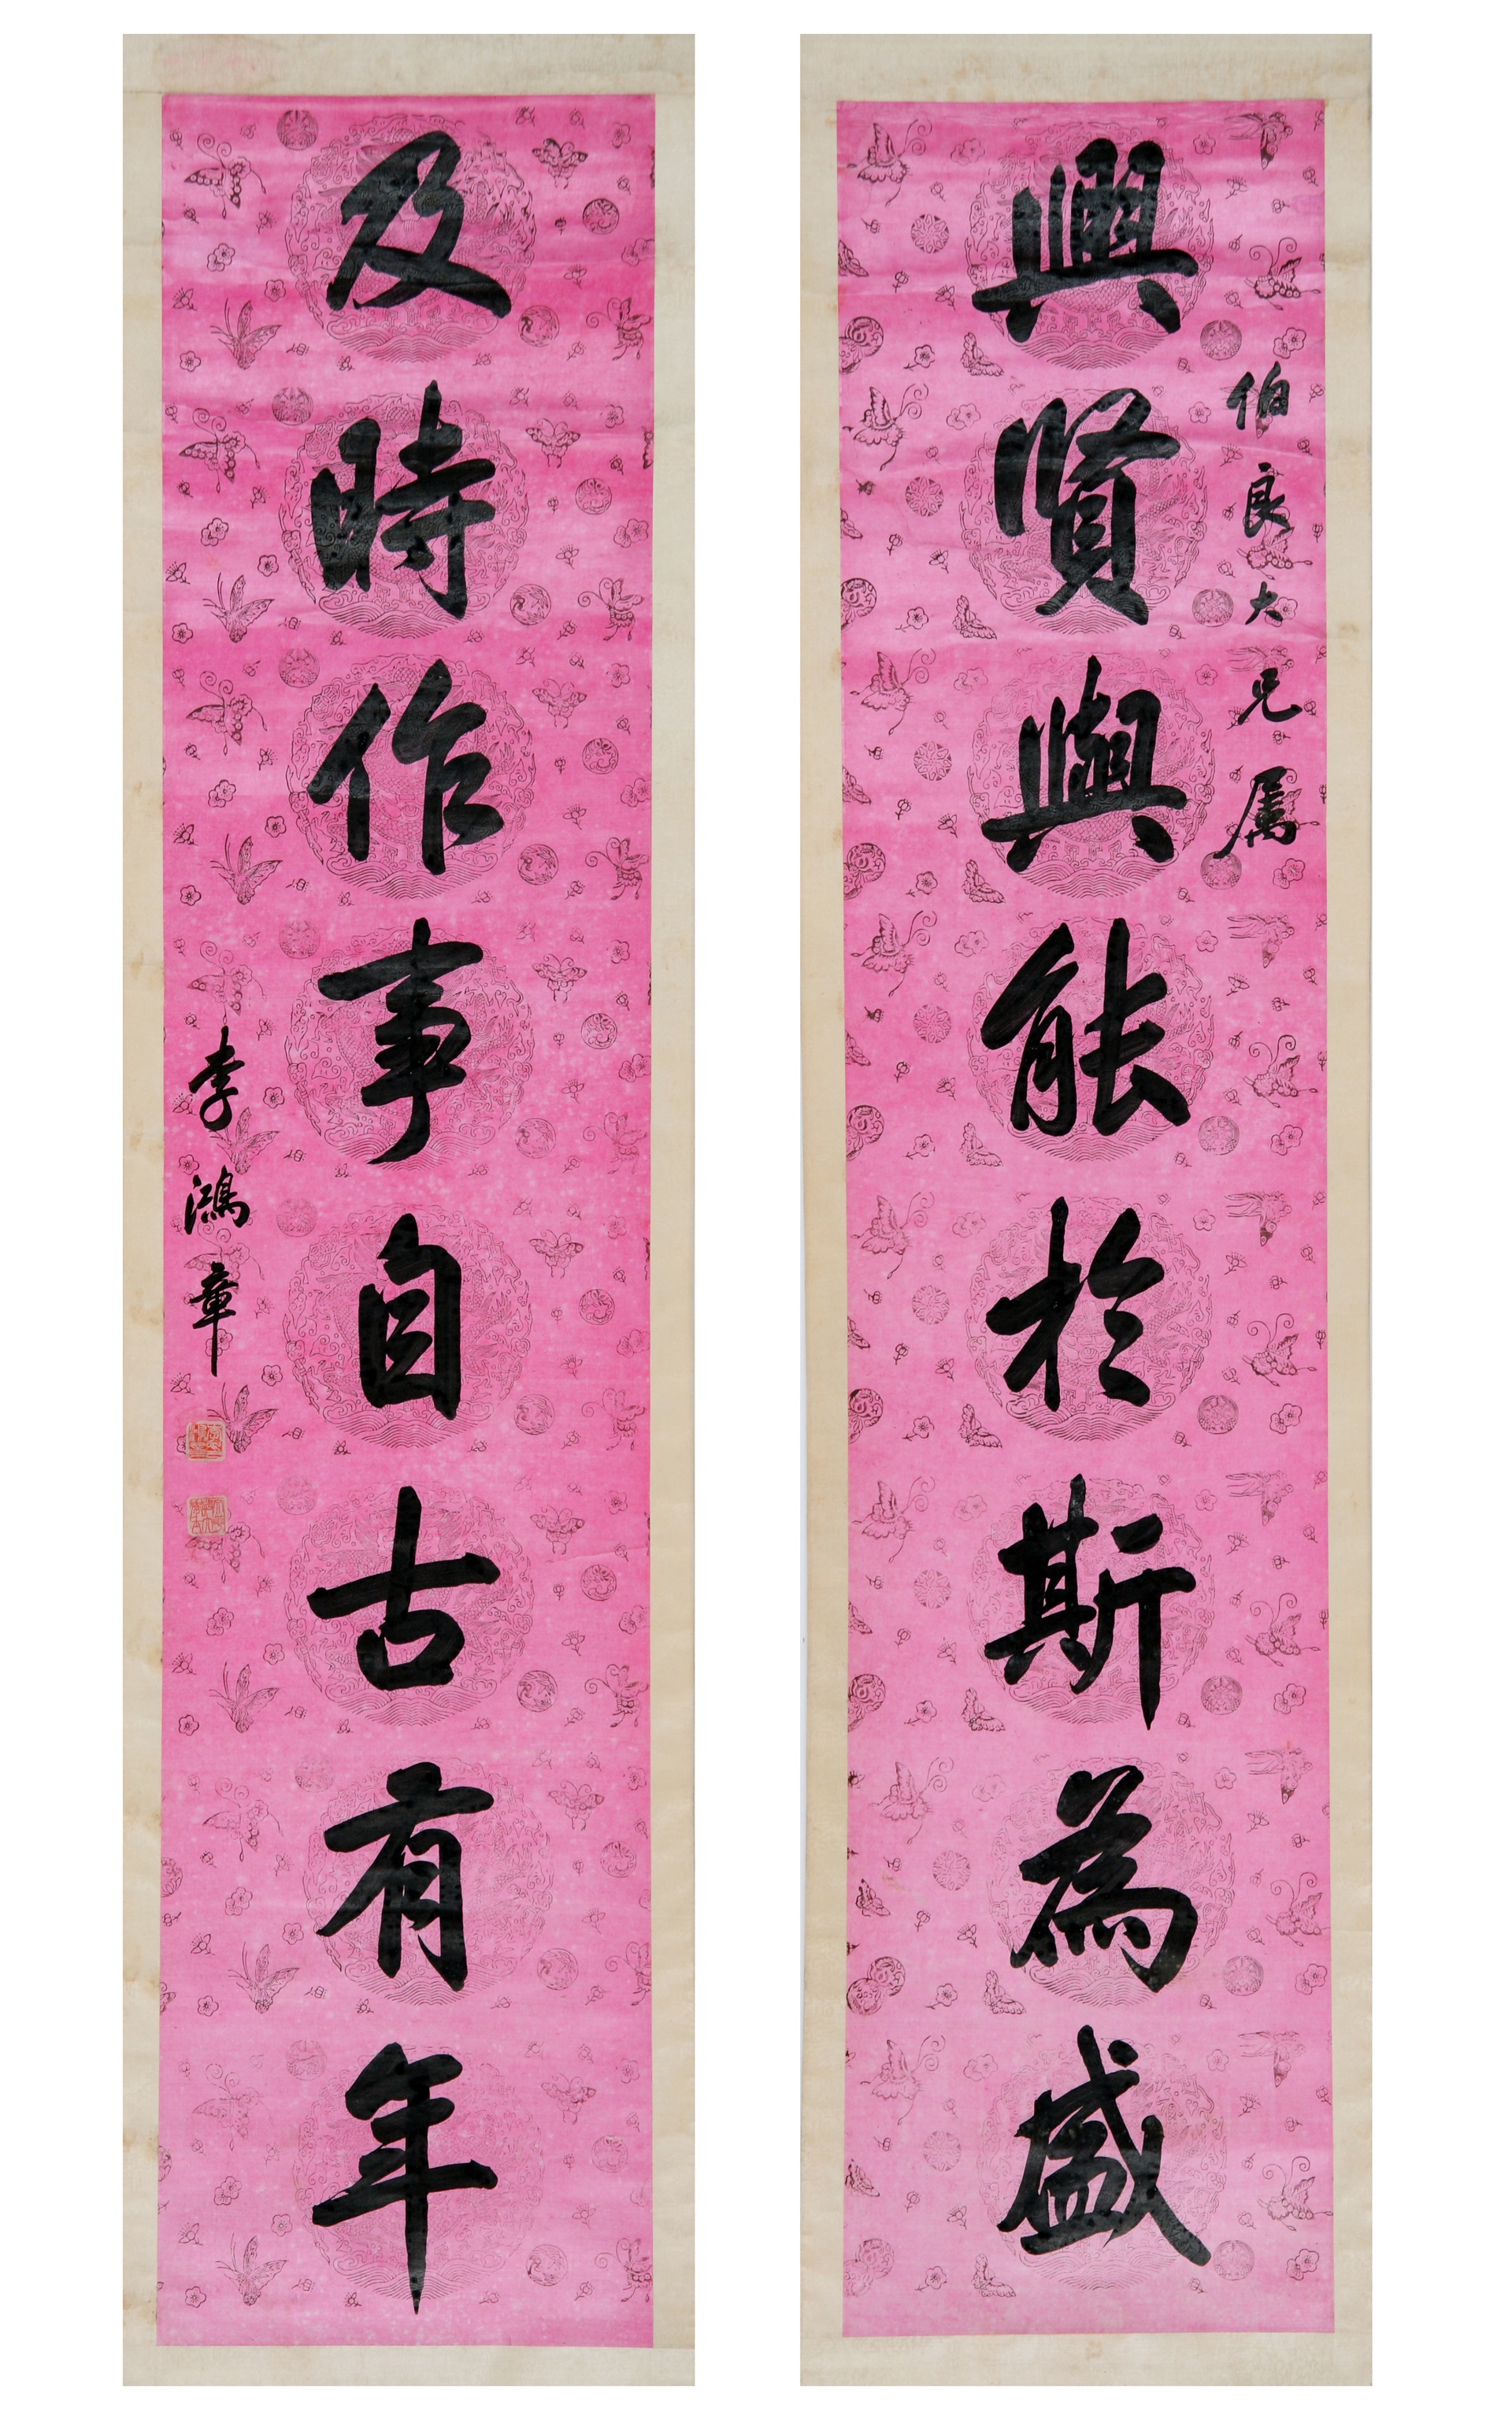 伯良大兄属
興賢興能於斯為盛
及時作事自古有年
李鴻章